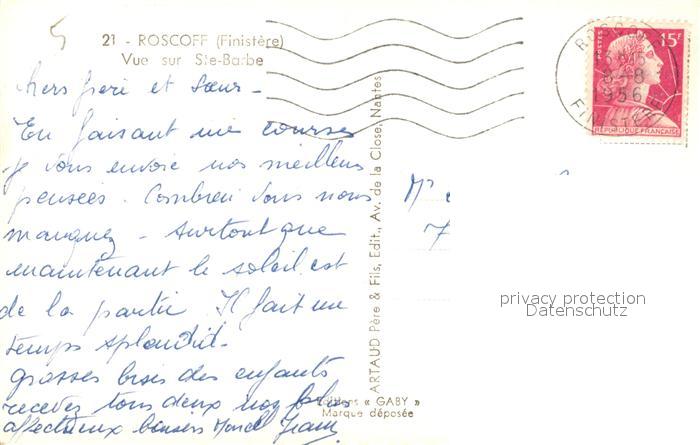 5
21 - ROSCOFF (Finistère)
Vue sur Ste-Barbe
chers frère et sœur -
En faisant une courses
je vous envoie nos meilleures
pensées. Combien vous nous
manquez - surtout que
maintenant le soleil est
de la partie. Il fait un
temps splendid.
grosses bises des enfants
recevez tous deux nos plus
affectueux baisers Marcel Jean
ARTAUD Père & Fils, Edit., Av. de la Close, Nantes
Editions « GABY »
Marque déposée
ROSCOFF
8-8
1956
FINISTERE
POSTES
15F
REPUBLIQUE FRANÇAISE
Mr
7
privacy protection
Datenschutz